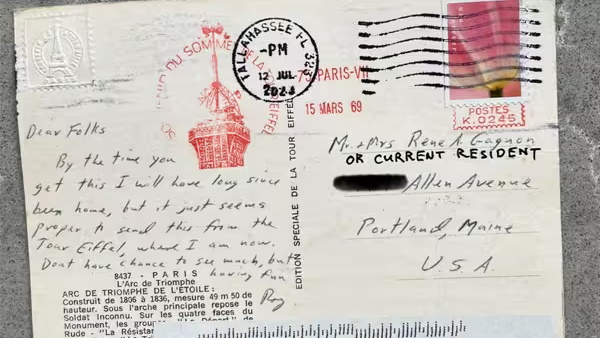 DU SOMME
DE LA
EIFFEL
TALLAHASSEE FL 323
-PM
12 JUL
2023
PARIS-VII
15 MARS 69
POSTES
K.0245
Dear Folks
By the time you
get this I will have long since
been home, but it just seems
proper to send this from the
Tour Eiffel, where I am now.
Dont have chance to see much, but
having fun
Roy
EDITION SPECIALE DE LA TOUR EIFFEL
Mr. + Mrs Rene A. Gagnon
OR CURRENT RESIDENT
Allen Avenue
Portland, Maine
U.S.A.
8437 - PARIS
L'Arc de Triomphe
ARC DE TRIOMPHE DE L'ETOILE:
Construit de 1806 à 1836, mesure 49 m 50 de
hauteur. Sous l'arche principale repose le
Soldat Inconnu. Sur les quatre faces du
Monument, les
Rude - "La